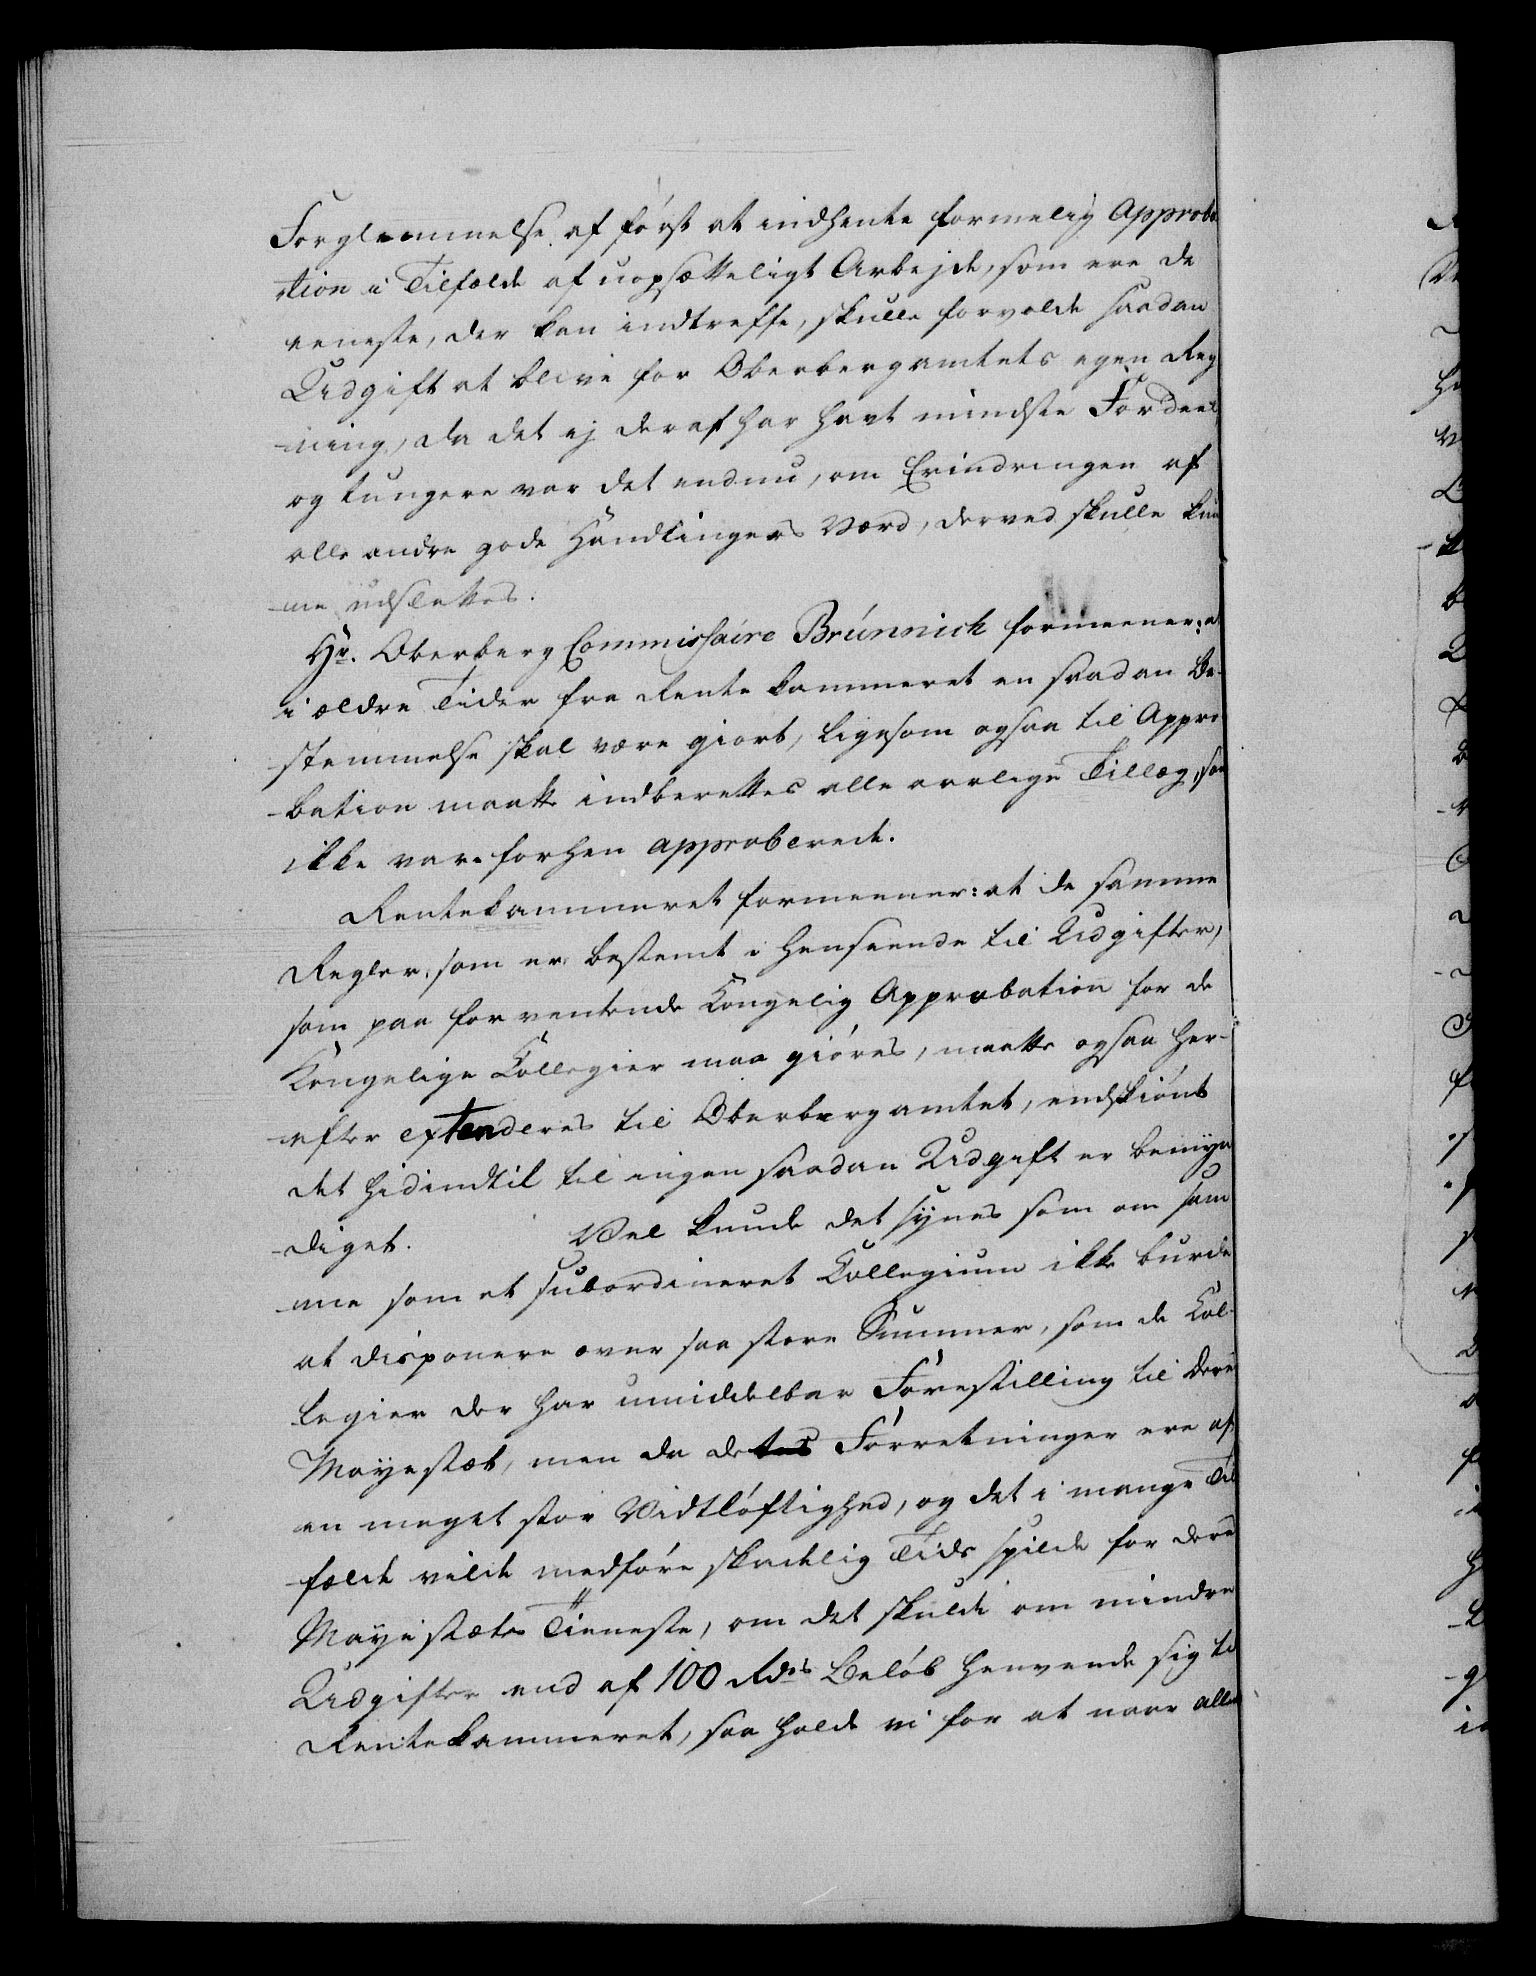 Forglemmelse af först at indhente formelig Approba
tion i Tilfælde af uopsætteligt Arbejde, som ere de
eeneste, der kan indtreffe, skulle forvolde saadan
Udgift at blive for Oberbergamtets egen Reg
-ning, da det ej deraf har havt mindste Fordeel
og tungere var det endnu, om Erindringen af
alle andre gode Handlingers Værd, derved skulle kun
-ne udslettes.
Hr. Oberberg Commissaire Brünnich formeener: at
i ældre Tider fra Rentekammeret en saadan Be-
stemmelse skal være giort, ligesom ogsaa til Appro
-bation maatte indberettes alle aarlige Tillæg, som
ikke vare forhen approberede.
Rentekammeret formeener: at de samme
Regler, som er bestemt i Henseende til Udgifter,
som paa forventende Kongelig Approbation for de
Kongelige Collegier maa giöres, maatte ogsaa her-
-efter extenderes til Oberbergamtet, endskiönt
det hidindtil til ingen saadan Udgift er bemyn
-diget. Vel kunde det synes som om sam
-me som et subordineret Collegium ikke burde
at disponere over saa store Summer, som de Col-
legier der har umiddelbar Forestilling til Deres
Mayestæt, men da dets Forretninger ere af
en meget stor Vidtlöftighed, og det i mange Til
-fælde vilde medföre skadelig Tids Spilde for Deres
Mayestæts Tieneste, om det skulde om mindre
Udgifter end af 100 Rdrs Belöb henvende sig til
Rentekammeret, saa holde vi for at naar alle